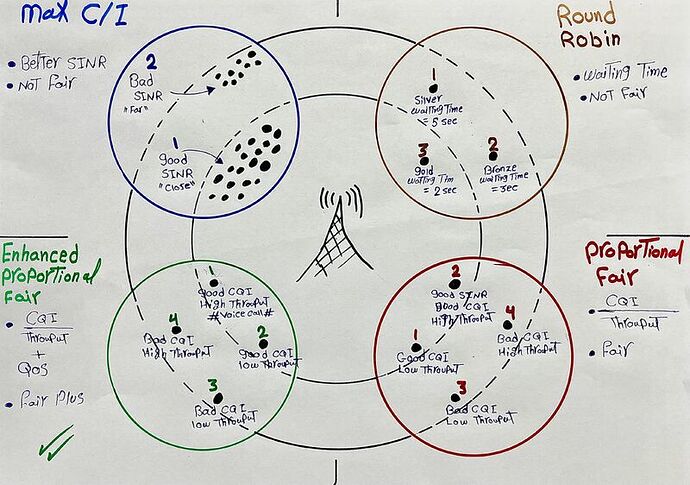 Max C/I
• Better SINR
• Not Fair
2
Bad
SINR
"Far"
1
good
SINR
"Close"
Round
Robin
• Waiting Time
• Not Fair
1
Silver
waiting Time
= 5 sec
3
gold
waiting Tim
= 2 sec
2
Bronze
waiting Time
= 3sec
Enhanced
Proportional
Fair
• CQI
Throuput
+
QoS
• Fair Plus
1
good CQI
High Throuput
#Voice call#
4
Bad CQI
High Throuput
2
good CQI
low Throuput
3
Bad CQI
low Throuput
Proportional
Fair
• CQI
Throuput
• Fair
2
good SINR
good CQI
High Throuput
4
Bad CQI
High Throuput
1
Good CQI
Low Throuput
3
Bad CQI
Low Throuput